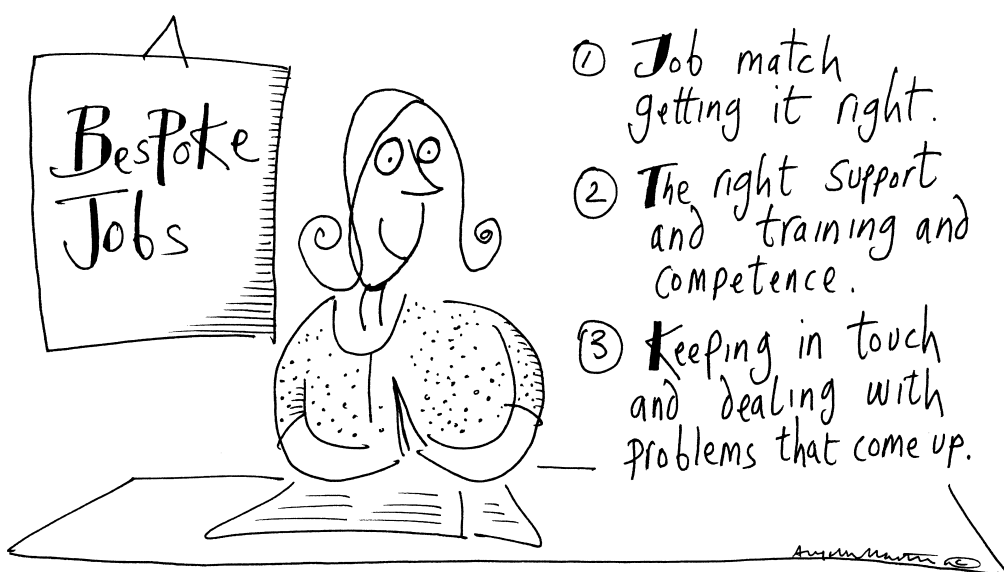 BesPoke
Jobs
① Job match
getting it right.
② The right support
and training and
competence.
③ Keeping in touch
and dealing with
problems that come up.